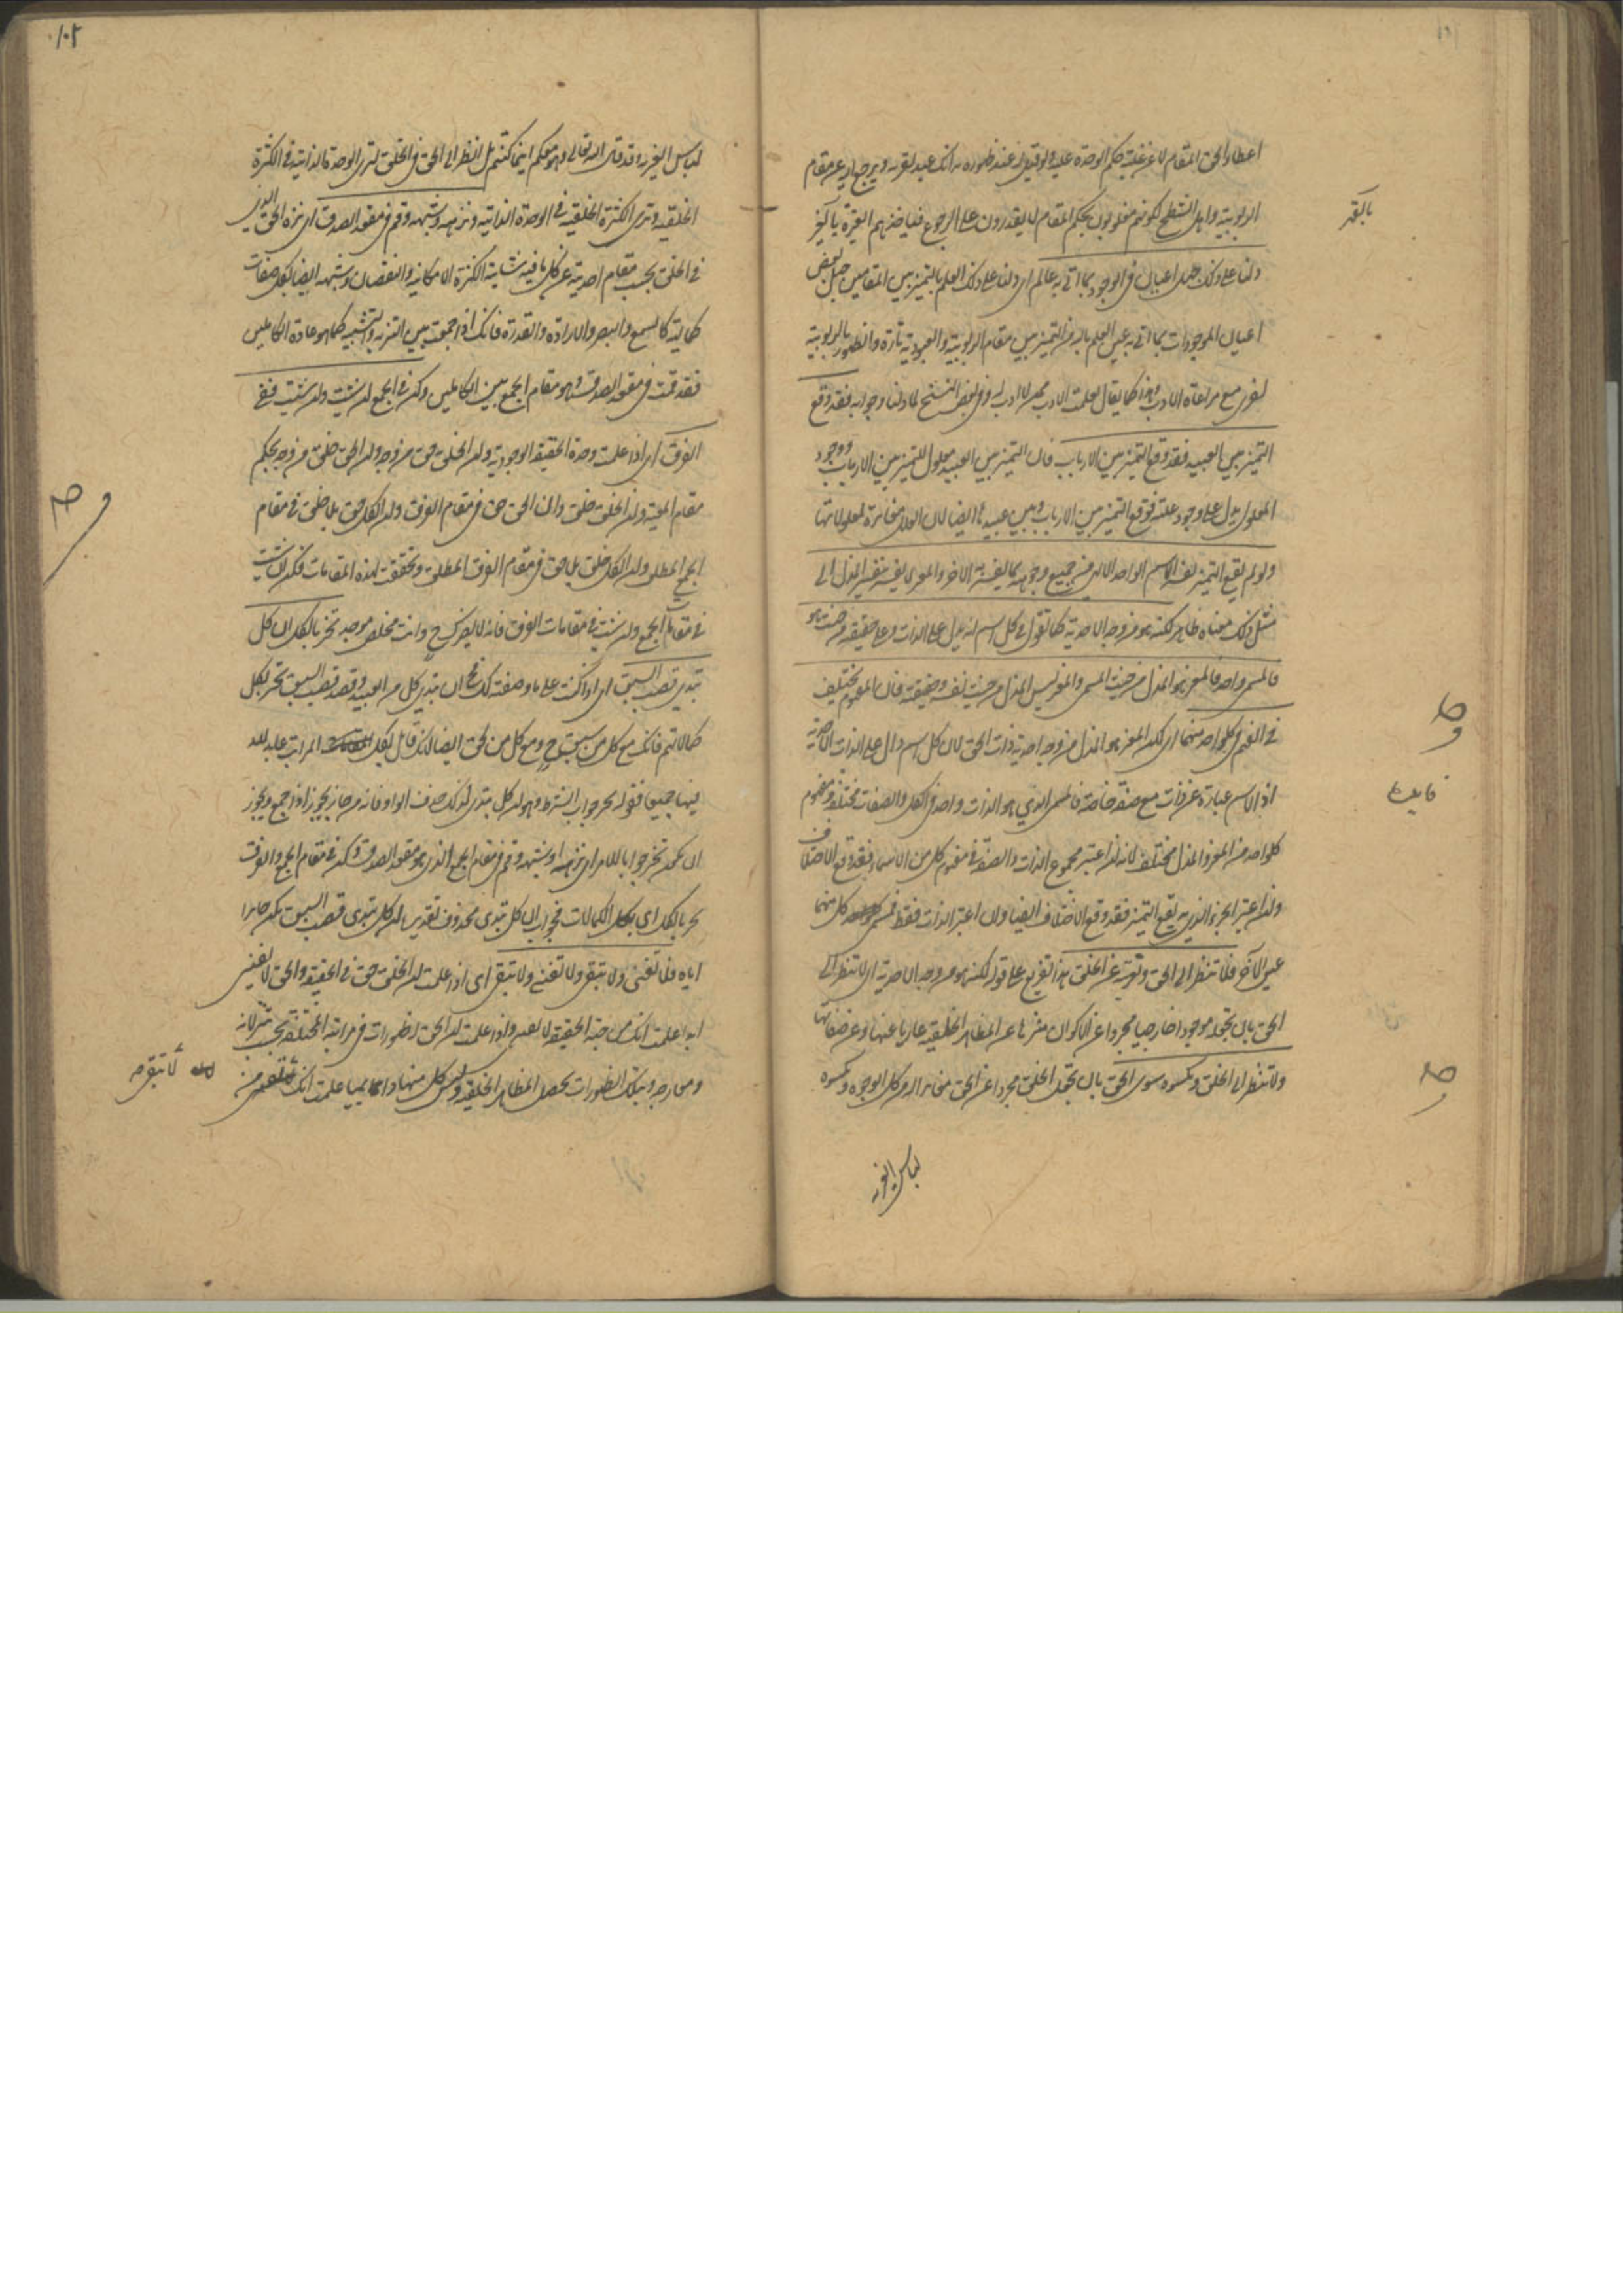 اعطاء الحق المقام لا عن غلبة حكم الوحدة عليه ولو قيل له عند ظهوره به انك عبد يقر به ويرجع اليه عن مقام
الربوبية واهل الشطح لكونهم مغلوبون بحكم المقام لا يقدرون على الرجوع
دلنا على ذلك جهل اعيان في الوجود بما اتى به عالم اى دلنا على ذلك العلم بالتميز بين المقامين جهل بعض
اعيان الموجودات بما اتى به عين العلم بالله من التميز بين مقام الربوبية والعبودية تارة والظهور بالربوبية
اخرى مع مراعاة الادب وهذا كما يقال تعلمت الادب ممن لا ادب له وفي بعض النسخ لما دلنا وجوابه فقد وقع
التميز بين العبيد فقد وقع التميز بين الارباب فان التميز بين العبيد معلول للتميز بين الارباب ووجود
المعلول يدل على وجود علته فوقع التميز بين الارباب وبين عبيدها ايضا لان العلل مغايرة لمعلولاتها
ولو لم يقع التميز لفسر الاسم الواحد الالهي من جميع وجوهه بما يفسر به الاخر والمعز لا يفسر بتفسير المذل الى
مثل ذلك معناه ظاهر لكنه هو من وجه الاحدية كما تقول في كل اسم انه دليل على الذات وعلى حقيقته من حيث هو
فالمسمى واحد فالمعز هو المذل من حيث المسمى والمعز ليس المذل من حيث نفسه وحقيقته فان المفهوم يختلف
في الفهم في كل واحد منهما اى لكن المعز هو المذل من وجه احدية ذات الحق لان كل اسم دال على الذات الاحدية
اذ الاسم عبارة عن ذات مع صفة خاصة فالمسمى الذي هو الذات واحد في الكل والصفات مختلفة ومفهوم
كل واحد من المعز والمذل مختلف لانه ان اعتبر مجموع الذات والصفة في مفهوم كل من الاسماء فقد وقع الاختلاف
وان اعتبر الجزء الذي به يقع التميز فقد وقع الاختلاف ايضا وان اعتبر الذات فقط فمسمى كل منهما
عين الآخر فلا تنظر الى الحق وتعريه عن الخلق هذا تفريع على قوله لكنه هو من وجه الاحدية اى لا تنظر الى
الحق بان تجعله موجودا خارجيا مجردا عن الاكوان منزها عن المظاهر الخلقية عاريا عنها وعن صفاتها
ولا تنظر الى الخلق وتكسوه سوى الحق بان تجعل الخلق مجردا عن الحق مغايرا له من كل الوجوه وتكسوه
لباس الغيرية
لباس الغيرية وقد قال الله تعالى وهو معكم اينما كنتم بل انظر الى الحق في الخلق لترى الوحدة الذاتية في الكثرة
الخلقية وترى الكثرة الخلقية في الوحدة الذاتية ونزهه وشبهه وقم في مقعد الصدق اى نزه الحق الذي
في الخلق بحسب مقام احديته عن كل ما فيه شائبة الكثرة الامكانية والنقصان وشبهه ايضا بكل صفات
كمالية كالسمع والبصر والارادة والقدرة فانك اذا جمعت بين التنزيه والتشبيه كما هو عادة الكاملين
فقد قمت في مقعد الصدق وهو مقام الجمع بين الكمالين وكن في الجمع ان شئت وان شئت ففي
الفرق اى اذا علمت وحدة الحقيقة الوجودية وان الخلق حق من وجه وان الحق خلق من وجه بحكم
مقام المعية وان الخلق خلق وان الحق حق في مقام الفرق وان الكل حق بلا خلق في مقام
الجمع المطلق وان الكل خلق بلا حق في مقام الفرق المطلق وتحققت بهذه المقامات فكن ان شئت
في مقامات الجمع وان شئت في مقامات الفرق فانه لا يضرك ح وانت مخلص موحد تحز بالكل ان كل
تبدى قصب السبق اى اذا كنت على ما وصفته لك فح ان تبدى كل من العبيد وقصد قصب السبق تحز بكل
كمالاتهم فانك مع كل من سبق ح ومع كل من لحق ايضا لانك قابل بكل المراتب عابد لله
فيها جميعا فقوله تحز جواب الشرط وهو ان كل تبدى لذلك حذف الواو فانه من حاز يحوز اذا جمع ويجوز
ان يكون تحز جوابا للامر اى نزهه وشبهه وقم في مقام الجمع الذي هو مقعد الصدق وكن في مقام الجمع والفرق
تحز بالكل اى بكل الكمالات فجواب ان كل تبدى محذوف تقديره ان كل تبدى قصب السبق تكن حايزا
اياه فلا تفنى ولا تبقى ولا تفني ولا تبقي اى اذا علمت ان الخلق حق في الحقيقة والحق لا يفنى
ابدا علمت انك من جهة الحقيقة لا تفنى واذا علمت ان للحق ظهورات في مراتبه المختلفة بحسب تنزلاته
ومعارجه وبتلك الظهورات تحصل المظاهر الخلقية وليس كل منها دائما علمت انك من
لا تبقى من